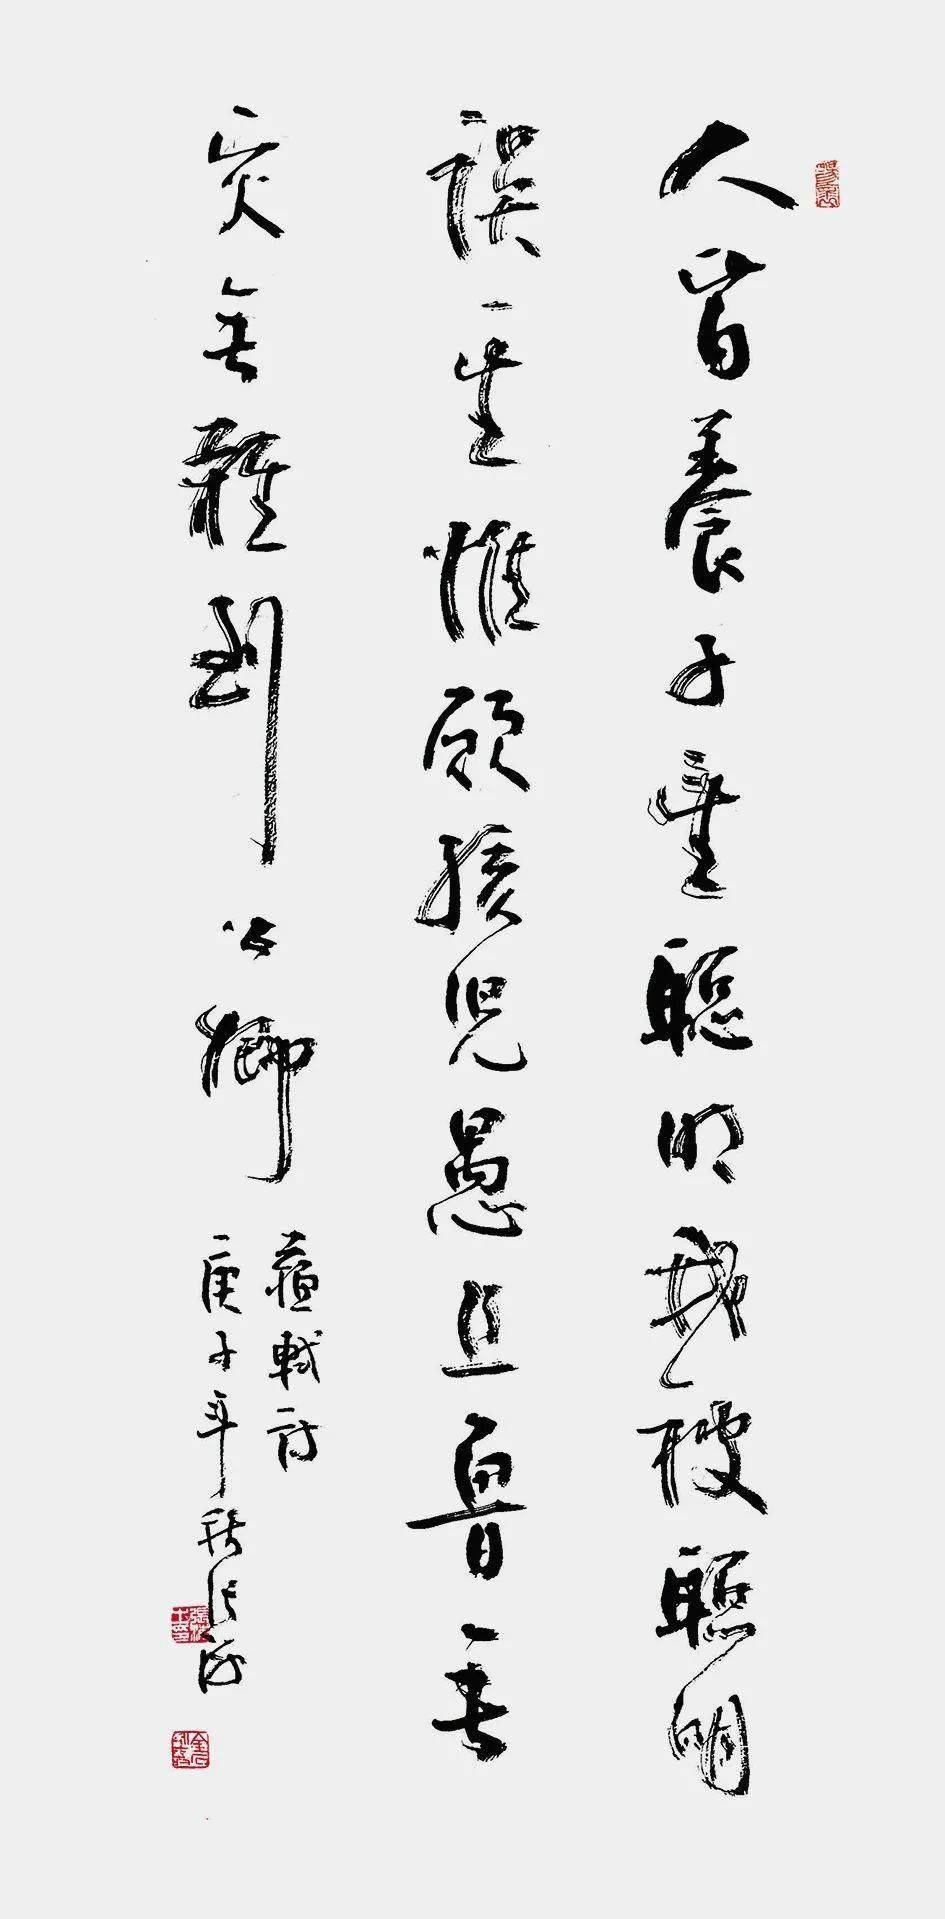 人皆養子望聰明我被聰明
誤一生惟願孩兒愚且魯無
災無難到公卿
蘇軾詩
庚子年秋張海